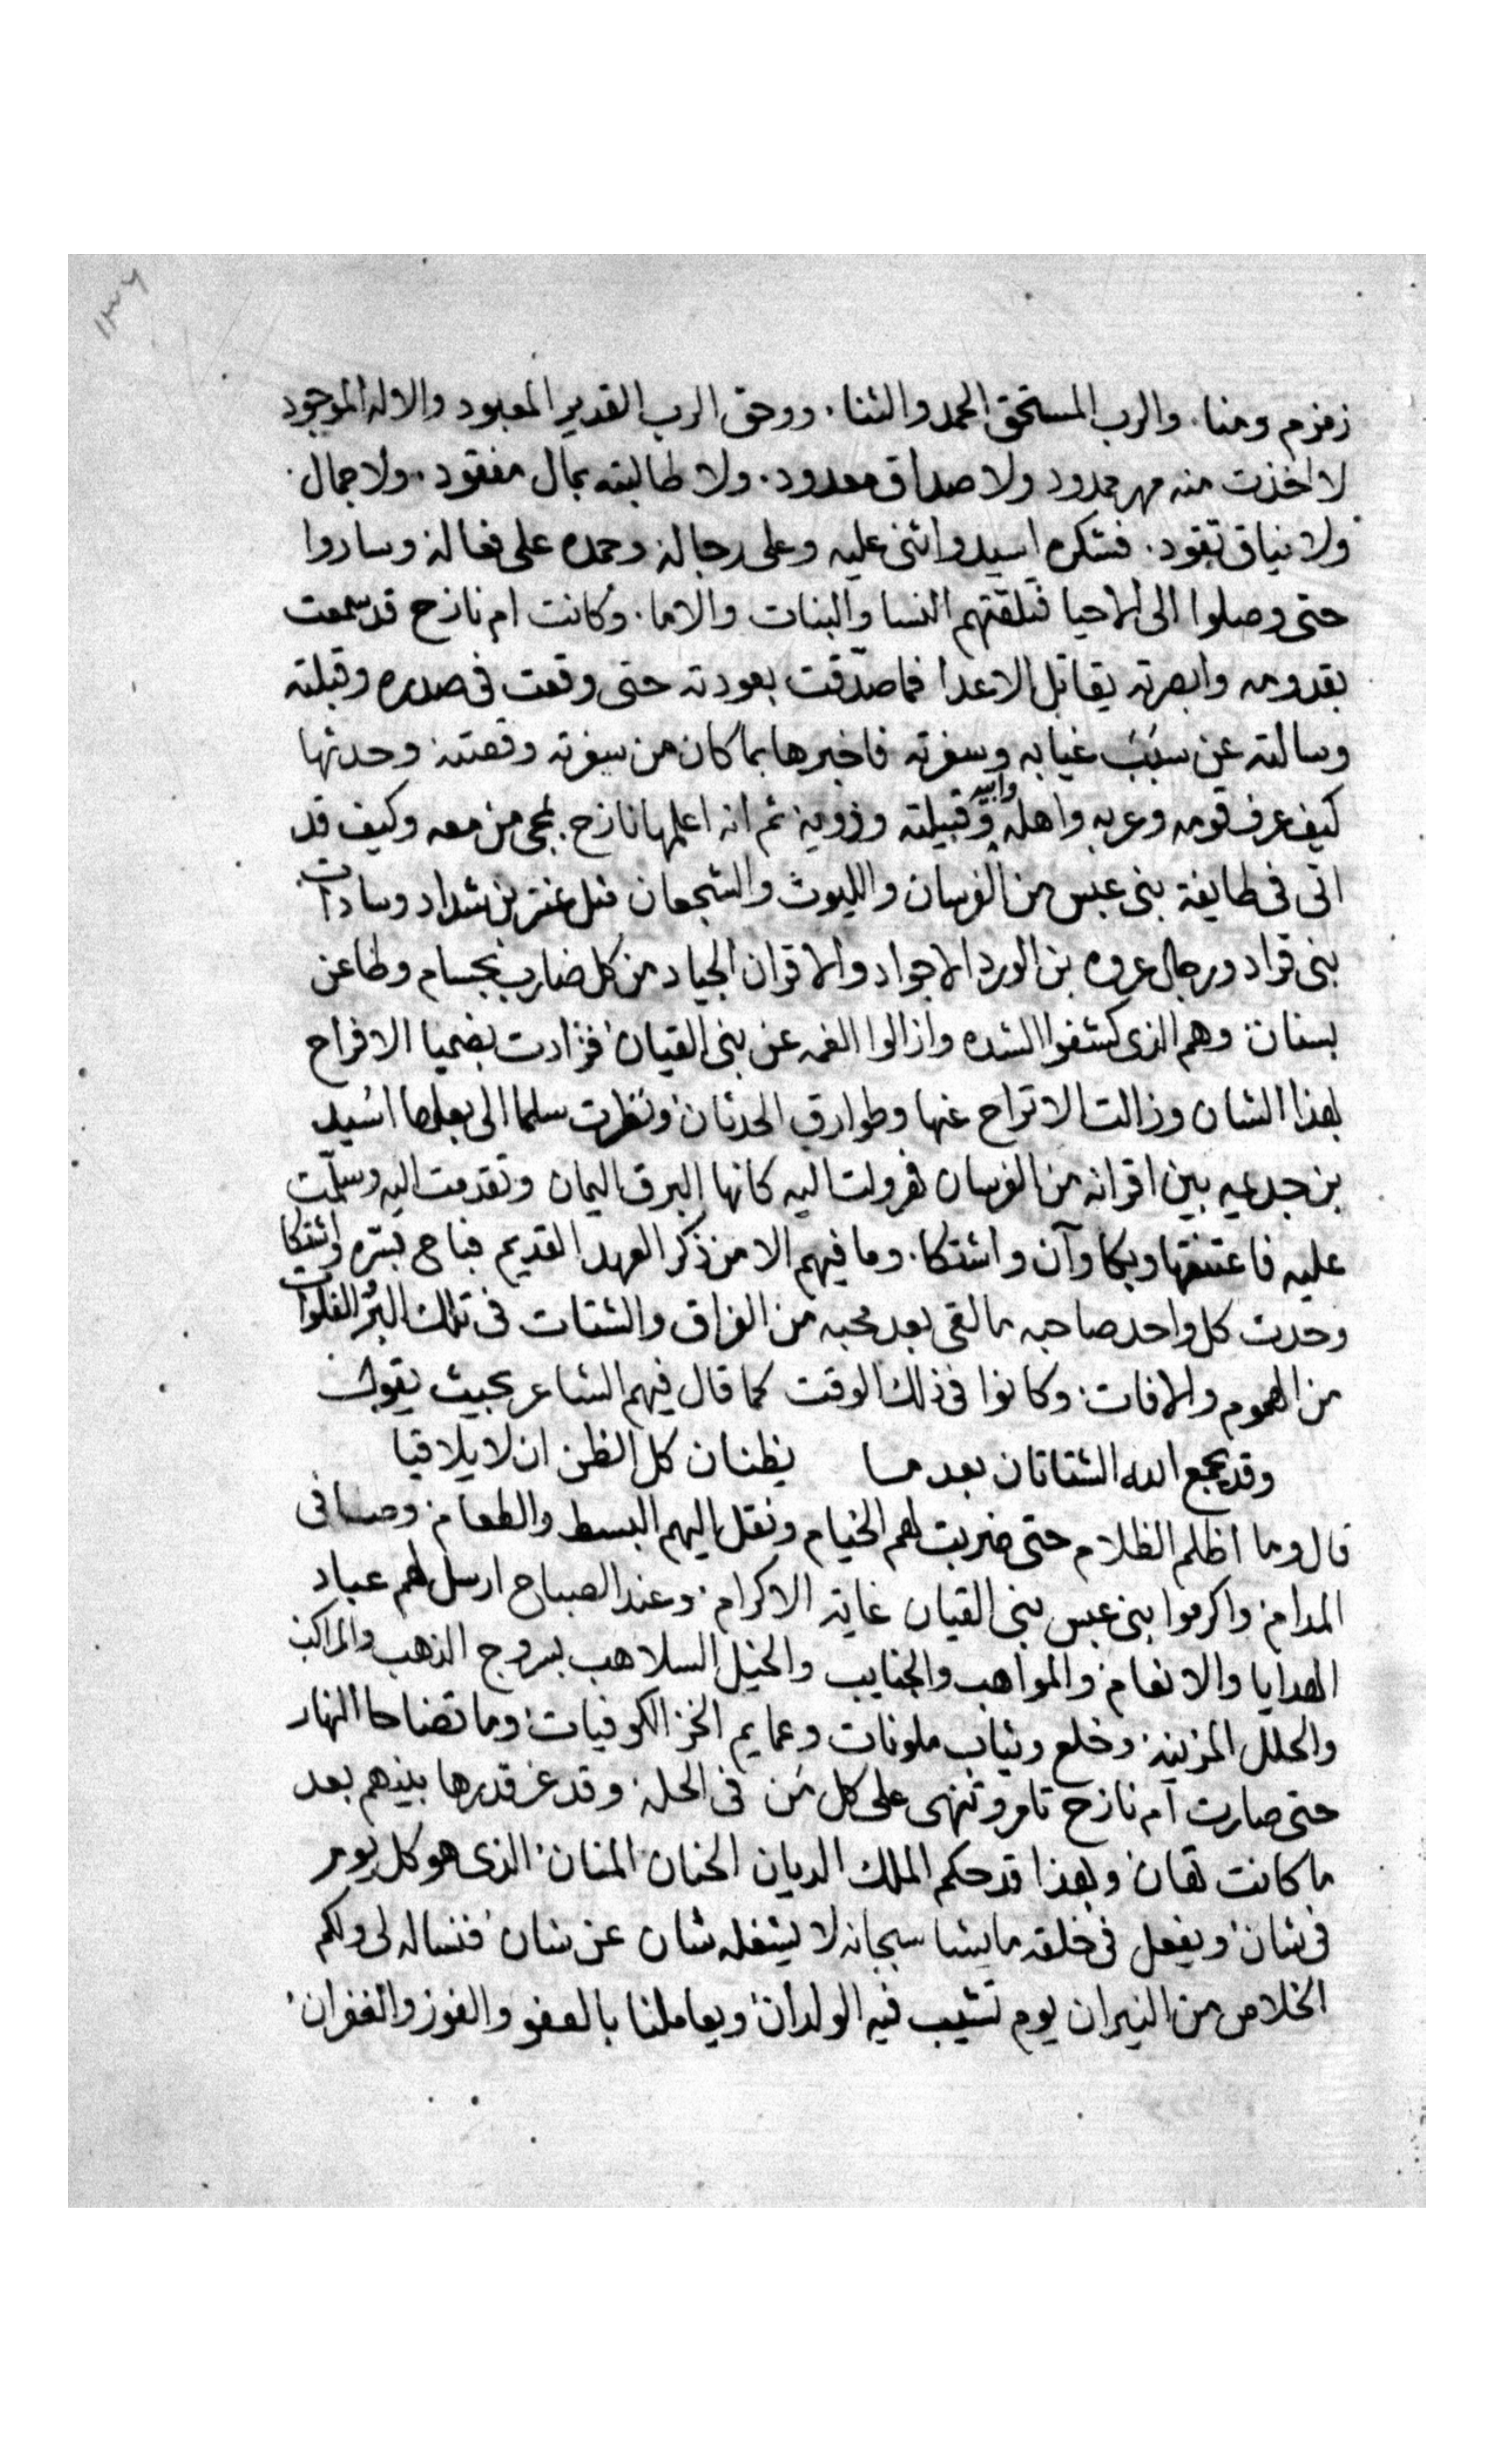 ١٣٦
زمزم ومنا. والرب المستحق الحمد والثنا. ووحق الرب القدير المعبود والاله الموجود
لا اخذت منه مهر ممدود ولا صداق معدود. ولا طالبته بمال مفقود. ولا جمال.
ولا نياق تقود. فشكره اسيد واثنى عليه وعلى رجاله وحمده على فعاله وساروا
حتى وصلوا الى الاحيا فتلقتهم النسا والبنات والاما. وكانت ام نازح قد سمعت
بقدومه وابصرته يقاتل الاعدا فما صدّقت بعودته حتى وقعت فى صدره وقبلته
وسالته عن سبب غيابه وسفرته فاخبرها بما كان من سفرته وقصته وحدثها
كيف عرف قومه وعربه واهله وابيه وقبيلته وذويه ثم انه اعلمها نازح بمجى من معه وكيف قد
اتى فى طايفة بنى عبس من الفرسان والليوث والشجعان مثل عنتر بن شداد وسادات
بنى قراد ورجال عروه بن الورد الاجواد والاقران الجياد من كل ضارب بحسام وطاعن
بسنان وهم الذى كشفوا الشده وازالوا الغمه عن بنى القيان فزادت بضميا الافراح
بهذا الشان وزالت الاتراح عنها وطوارق الحدثان ونظرت سلما الى بعلها اسيد
بن جدعيه بين اقرانه من الفرسان فهرولت اليه كانها البرق اليمان وتقدمت اليه وسلّمت
عليه فاعتنقها وبكا وآن واشتكا. وما فيهم الا من ذكر العهد القديم فباح بسّره واشتكا
وحدث كل واحد صاحبه ما لقى بعد محبه من الفراق والشتات فى تلك البرّ الفلوات
من الهموم والافات وكانوا فى ذلك الوقت كما قال فيهم الشاعر بحيث يقول
وقد يجمع الله الشتاتان بعد مسا يظنان كل الظن ان لا يلاقيا
قال وما اظلم الظلام حتى ضربت لهم الخيام ونقل اليهم البسط والطعام وصافى
المدام واكرموا بنى عبس بنى القيان غاية الاكرام وعند الصباح ارسل لهم عباد
الهدايا والانعام والمواهب والجنايب والخيل السلاهب بسروج الذهب والمراكب
والحلل المزينه وخلع وثياب ملونات وعمايم الخز الكوفيات وما تضاحا النهار
حتى صارت ام نازح تامر وتنهى على كل من فى الحله وقد عز قدرها بينهم بعد
ما كانت تهان وبهذا قد حكم الملك الديان الحنان المنان الذى هو كل يوم
فى شان ويفعل فى خلقه ما يشا سبحانه لا يشغله شان عن شان فنساله لى ولكم
الخلاص من النيران يوم تشيب فيه الولدان ويعاملنا بالعفو والفوز والغفران